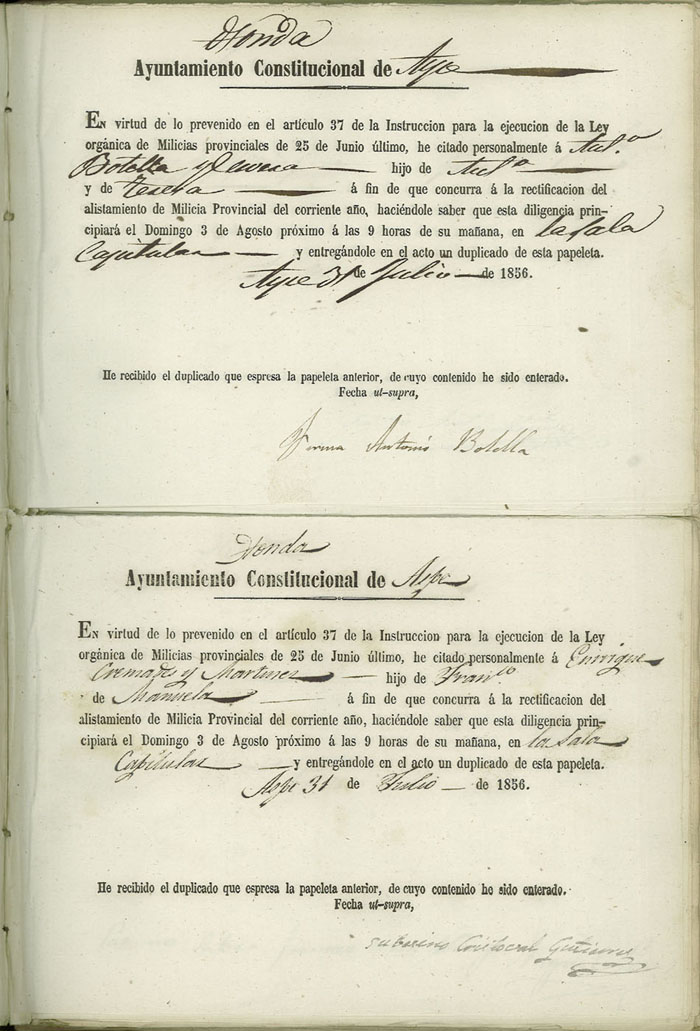 Honda
Ayuntamiento Constitucional de Aspe
EN virtud de lo prevenido en el artículo 37 de la Instruccion para la ejecucion de la Ley
orgánica de Milicias provinciales de 25 de Junio último, he citado personalmente á Ant.º
Botella y hijo de Ant.º
y de Teresa á fin de que concurra á la rectificacion del
alistamiento de Milicia Provincial del corriente año, haciéndole saber que esta diligencia prin-
cipiará el Domingo 3 de Agosto próximo á las 9 horas de su mañana, en la sala
Capitular y entregándole en el acto un duplicado de esta papeleta.
Aspe 31 de Julio de 1856.
He recibido el duplicado que espresa la papeleta anterior, de cuyo contenido he sido enterado.
Fecha ut-supra,
Firma Antonio Botella
Honda
Ayuntamiento Constitucional de Aspe
EN virtud de lo prevenido en el artículo 37 de la Instruccion para la ejecucion de la Ley
orgánica de Milicias provinciales de 25 de Junio último, he citado personalmente á Enrique
Cremades y Martinez hijo de Fran.co
de Manuela á fin de que concurra á la rectificacion del
alistamiento de Milicia Provincial del corriente año, haciéndole saber que esta diligencia prin-
cipiará el Domingo 3 de Agosto próximo á las 9 horas de su mañana, en la sala
Capitular y entregándole en el acto un duplicado de esta papeleta.
Aspe 31 de Julio de 1856.
He recibido el duplicado que espresa la papeleta anterior, de cuyo contenido he sido enterado.
Fecha ut-supra,